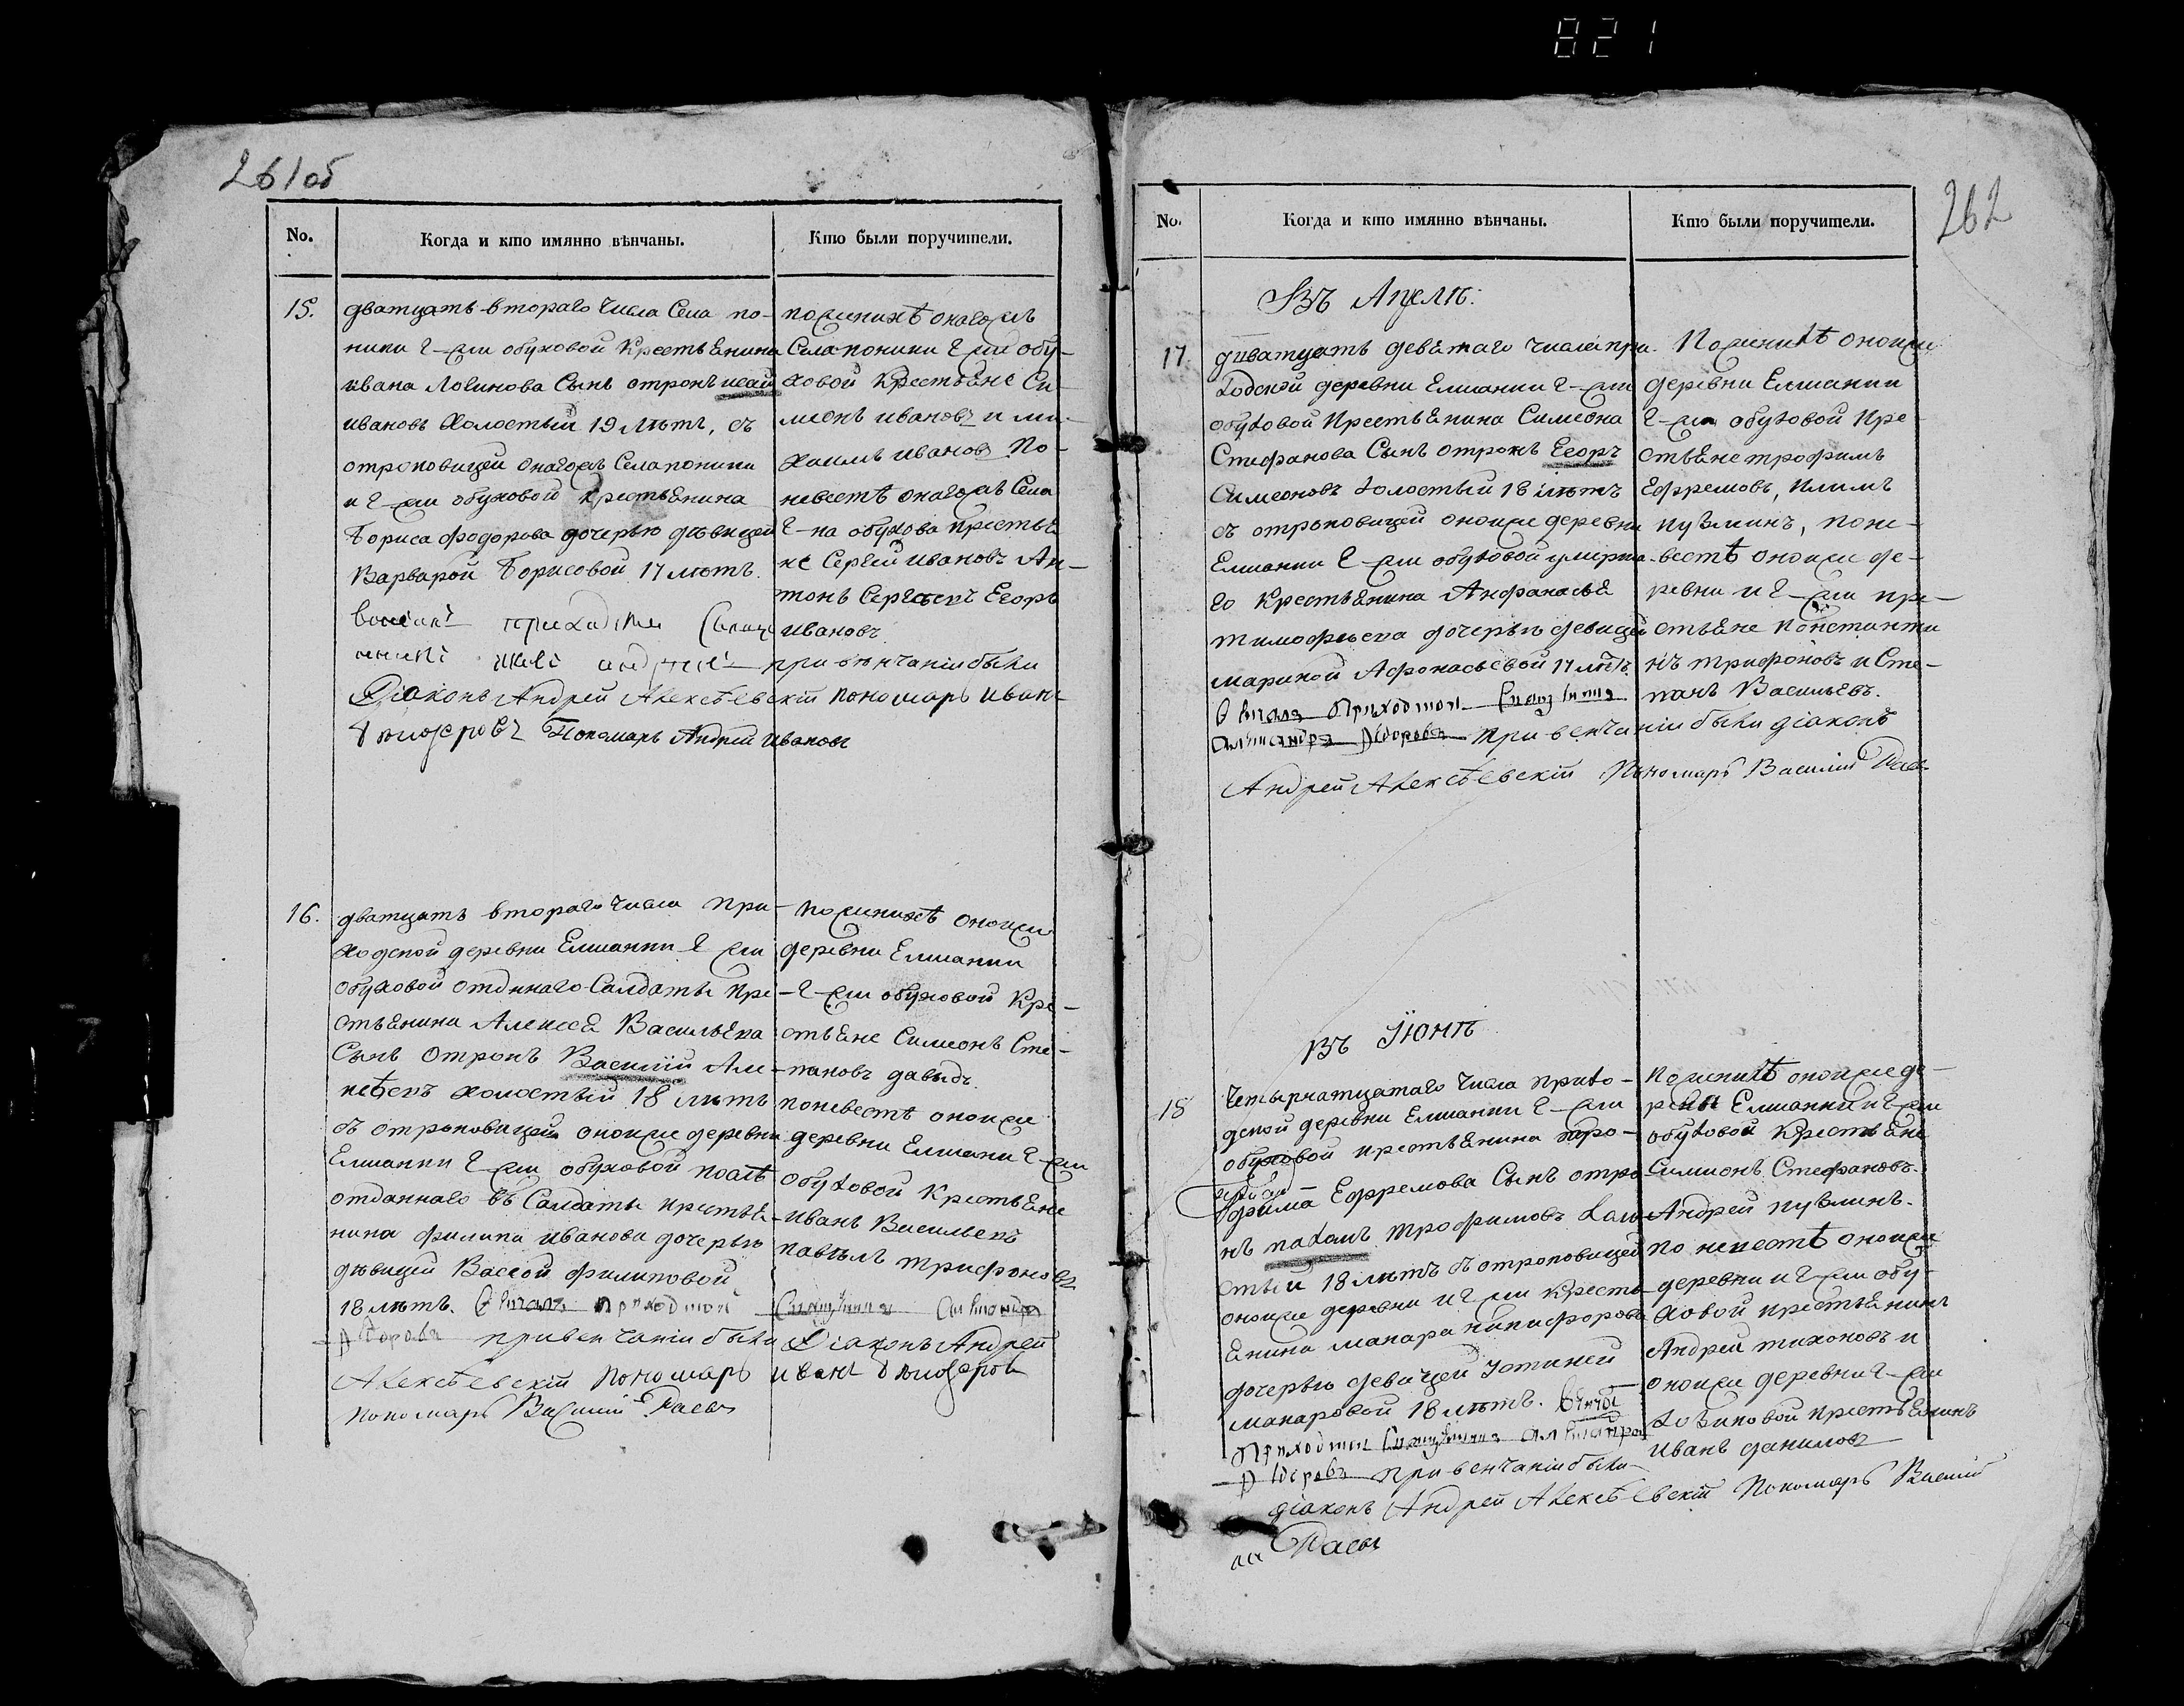 821
261об
No.
Когда и кто имянно вѣнчаны.
Кто были поручители.
15.
дватцать втораго числа Села по-
ники г-жи обуховой крестьянина
ивана Логинова Сынъ отрокъ исай
ивановъ холостый 19 лѣтъ, съ
отроковицей онагожъ Села поники
и г-жи обуховой крестьянина
Бориса федорова дочерью дѣвицей
Варварой Борисовой 17 лѣтъ.
при вѣнчаніи были
Діаконъ Андрей Алексѣевскій пономарь иванъ
Пономарь Андрей ивановъ
поженихѣ онагожъ
Села поники г-жи обу-
ховой крестьяне Си-
меонъ ивановъ и ми-
хаилъ ивановъ По-
невестѣ онагожъ Села
г-на обухова крестья
не Сергей ивановъ Ан-
тонъ Сергѣевъ Егоръ
ивановъ.
16.
дватцать втораго числа при-
ходской деревни Елшанки г-жи
обуховой отданнаго Салдаты кре-
стьянина Алексея Васильева
Сынъ отрокъ Василій Але-
ксѣевъ холостый 18 лѣтъ
съ отроковицей оноиже деревни
Елшанки г-жи обуховой
отданнаго въ Салдаты крестья-
нина филипа иванова дочерью
дѣвицей Васой филиповой
18 лѣтъ. приходской Александръ
при венчаніи были Діаконъ Андрей
Алексѣевскій Пономарь иванъ
пономарь Василий Раевъ
поженихѣ оноиже
деревни Елшанки
г-жи обуховой Кре-
стьяне Симеонъ Сте-
пановъ давыдъ.
поневестѣ оноиже
деревни Елшанки г-жи
обуховой Крестьяне
иванъ Васильевъ
павелъ трифоновъ
262
No.
Когда и кто имянно вѣнчаны.
Кто были поручители.
Въ Апрелѣ:
17.
дватцать девятаго числа при-
ходской деревни Елшанки г-жи
обуховой крестьянина Симеона
Стефанова Сынъ отрокъ Егоръ
Симеоновъ холостый 18 лѣтъ
съ отроковицей оноиже деревни
Елшанки г-жи обуховой умерша-
го крестьянина Анфанасья
тимофеева дочерью девицей
мариной Афонасьевой 17 лѣтъ.
при венчаніи были діаконъ
Андрей Алексѣевскій Пономарь Василий Раевъ
Поженихѣ оноиже
деревни Елшанки
г-жи обуховой кре-
стьяне трофимъ
Ефремовъ, климъ
кузминъ, поне-
вестѣ оноиже де-
ревни и г-жи кре-
стьяне константи
нъ трифоновъ и Сте-
панъ Васильевъ.
въ Іюнѣ
18
Четырнатцатаго числа прихо-
дской деревни Елшанки г-жи
обуховой крестьянина тро-
фима Ефремова Сынъ отро
къ пахомъ трофимовъ холо
стый 18 лѣтъ съ отроковицей
оноиже деревни и г-жи кресть
янина макара никифорова
дочерью девицей Устиньей
макаровой 18 лѣтъ.
при венчаніи были
діаконъ Андрей Алексѣевскій Пономарь Василий
Раевъ
Поженихѣ оноиже де-
ревни Елшанки и г-жи
обуховой Крестьяне
Симионъ Стефановъ.
Андрей кузминъ.
по невестѣ оноиже
деревни и г-жи обу-
ховой крестьянинъ
Андрей тихоновъ и
оноиже деревни г-жи
крестьянинъ
иванъ даниловъ